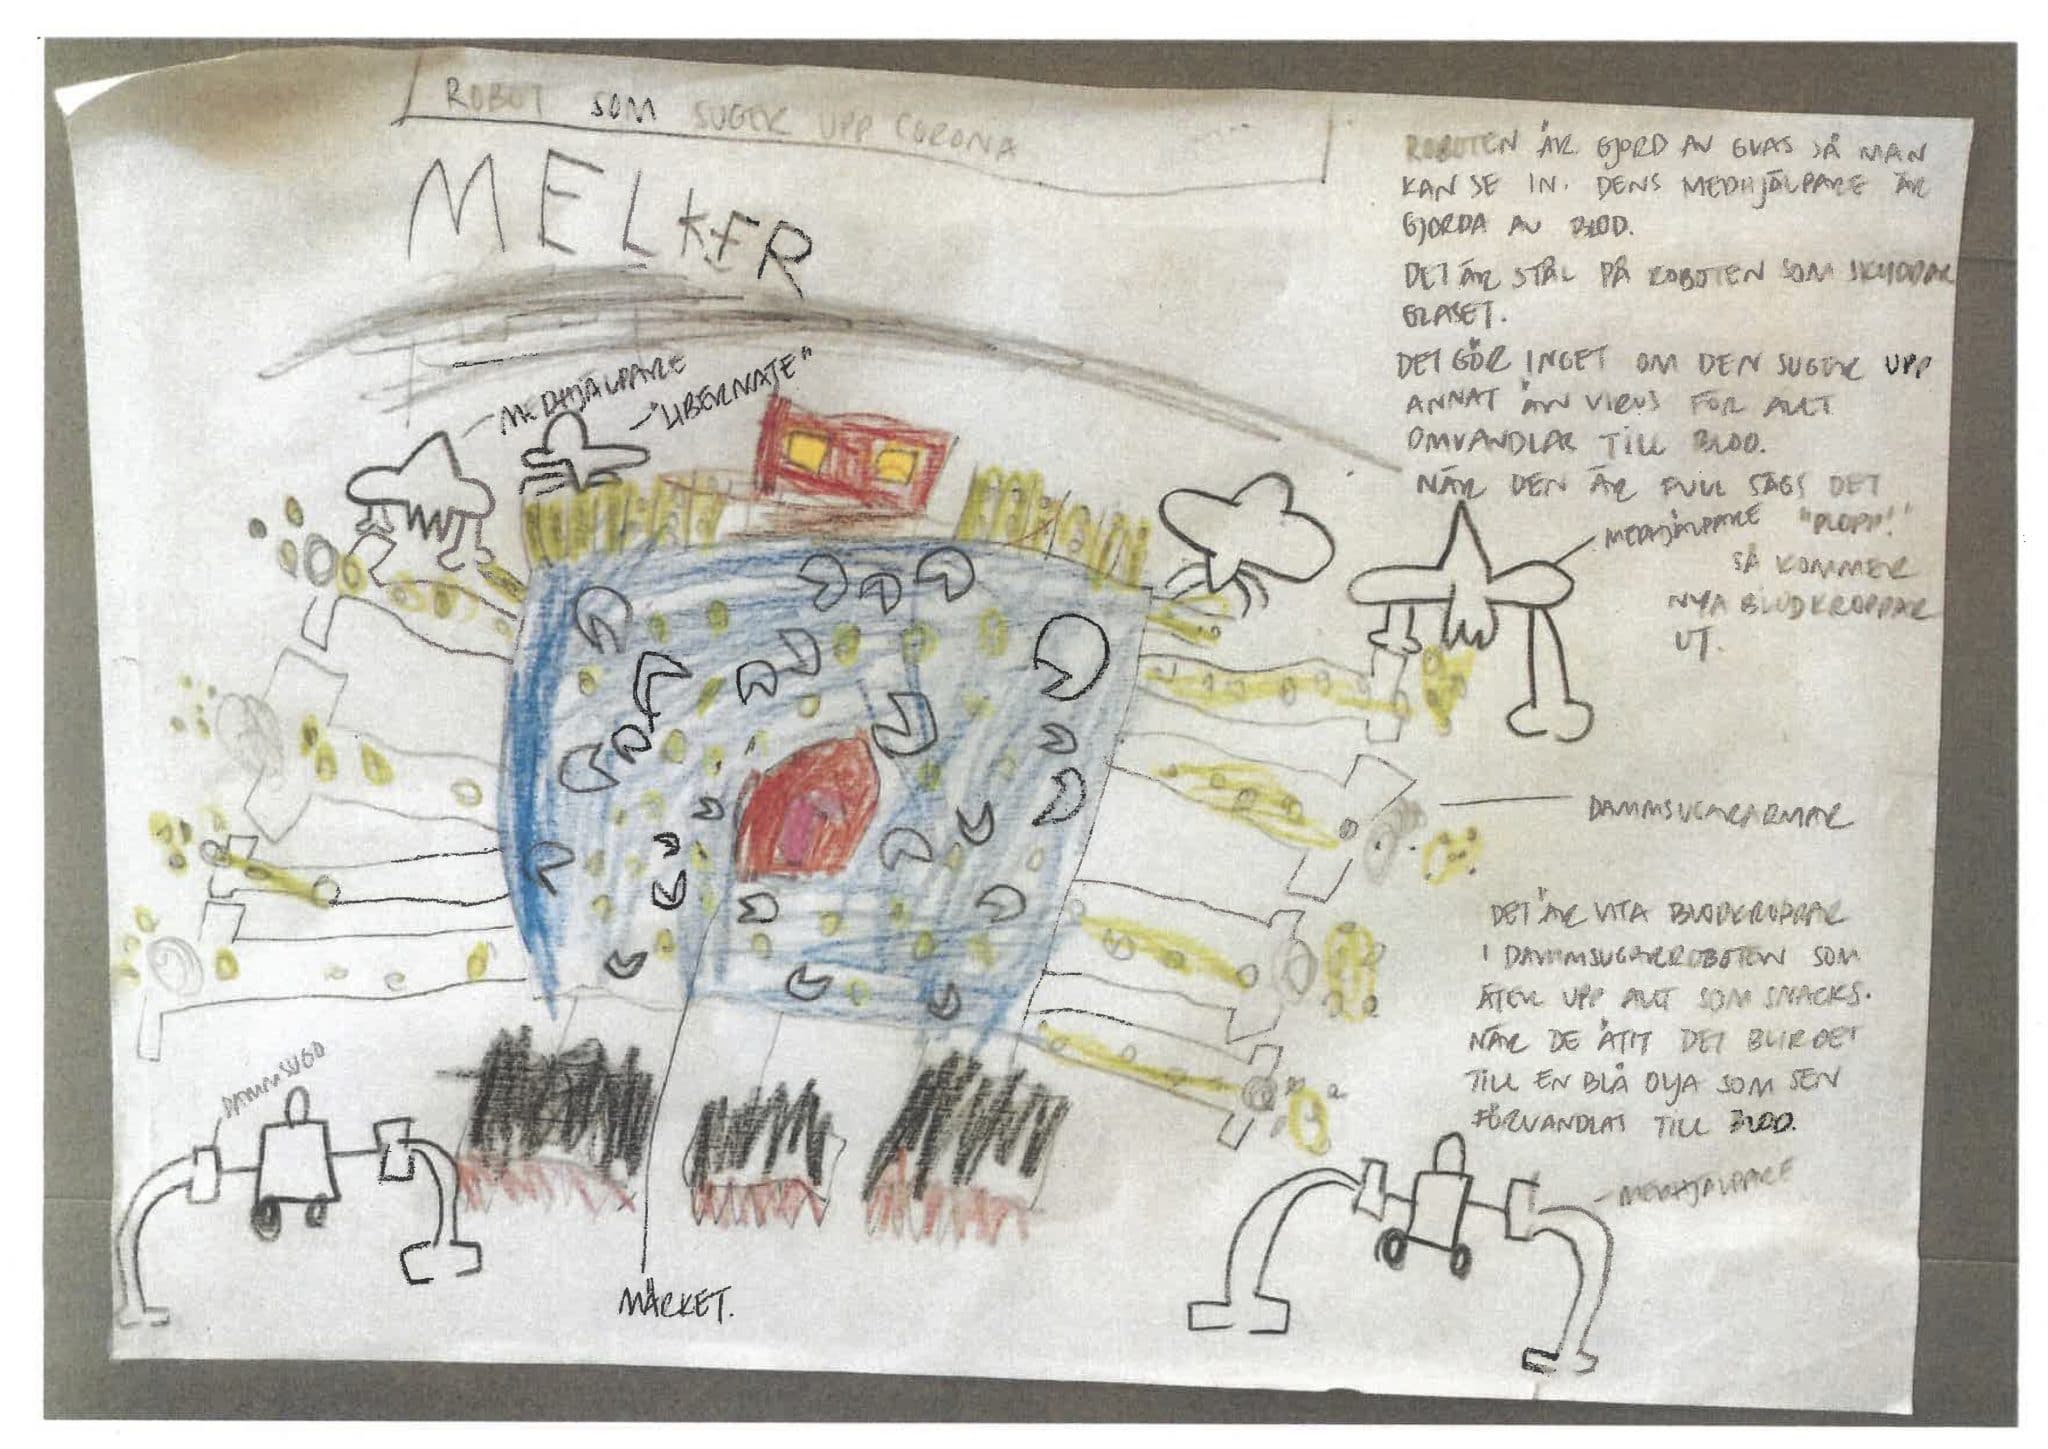 ROBOT SOM SUGER UPP CORONA
MELKER
MEDHJÄLPARE
ROBOTEN ÄR GJORD AV GLAS SÅ MAN
KAN SE IN. DENS MEDHJÄLPARE ÄR
GJORDA AV BLOD.
DET ÄR STÅL PÅ ROBOTEN SOM SKYDDAR
GLASET.
DET GÖR INGET OM DEN SUGER UPP
ANNAT ÄN VIRUS FÖR ALLT
OMVANDLAR TILL BLOD.
NÄR DEN ÄR FULL SÄGS DET
"PLOPP!"
SÅ KOMMER
NYA BLODKROPPAR
UT.
MEDHJÄLPARE
DAMMSUGARARMAR
DET ÄR VITA BLODKROPPAR
I DAMMSUGARROBOTEN SOM
ÄTER UPP ALLT SOM SNACKS.
NÄR DE ÄTIT DET BLIR DET
TILL EN BLÅ OLJA SOM SEN
FÖRVANDLAS TILL BLOD.
DAMMSUGO
MEDHJÄLPARE
MÄRKET.